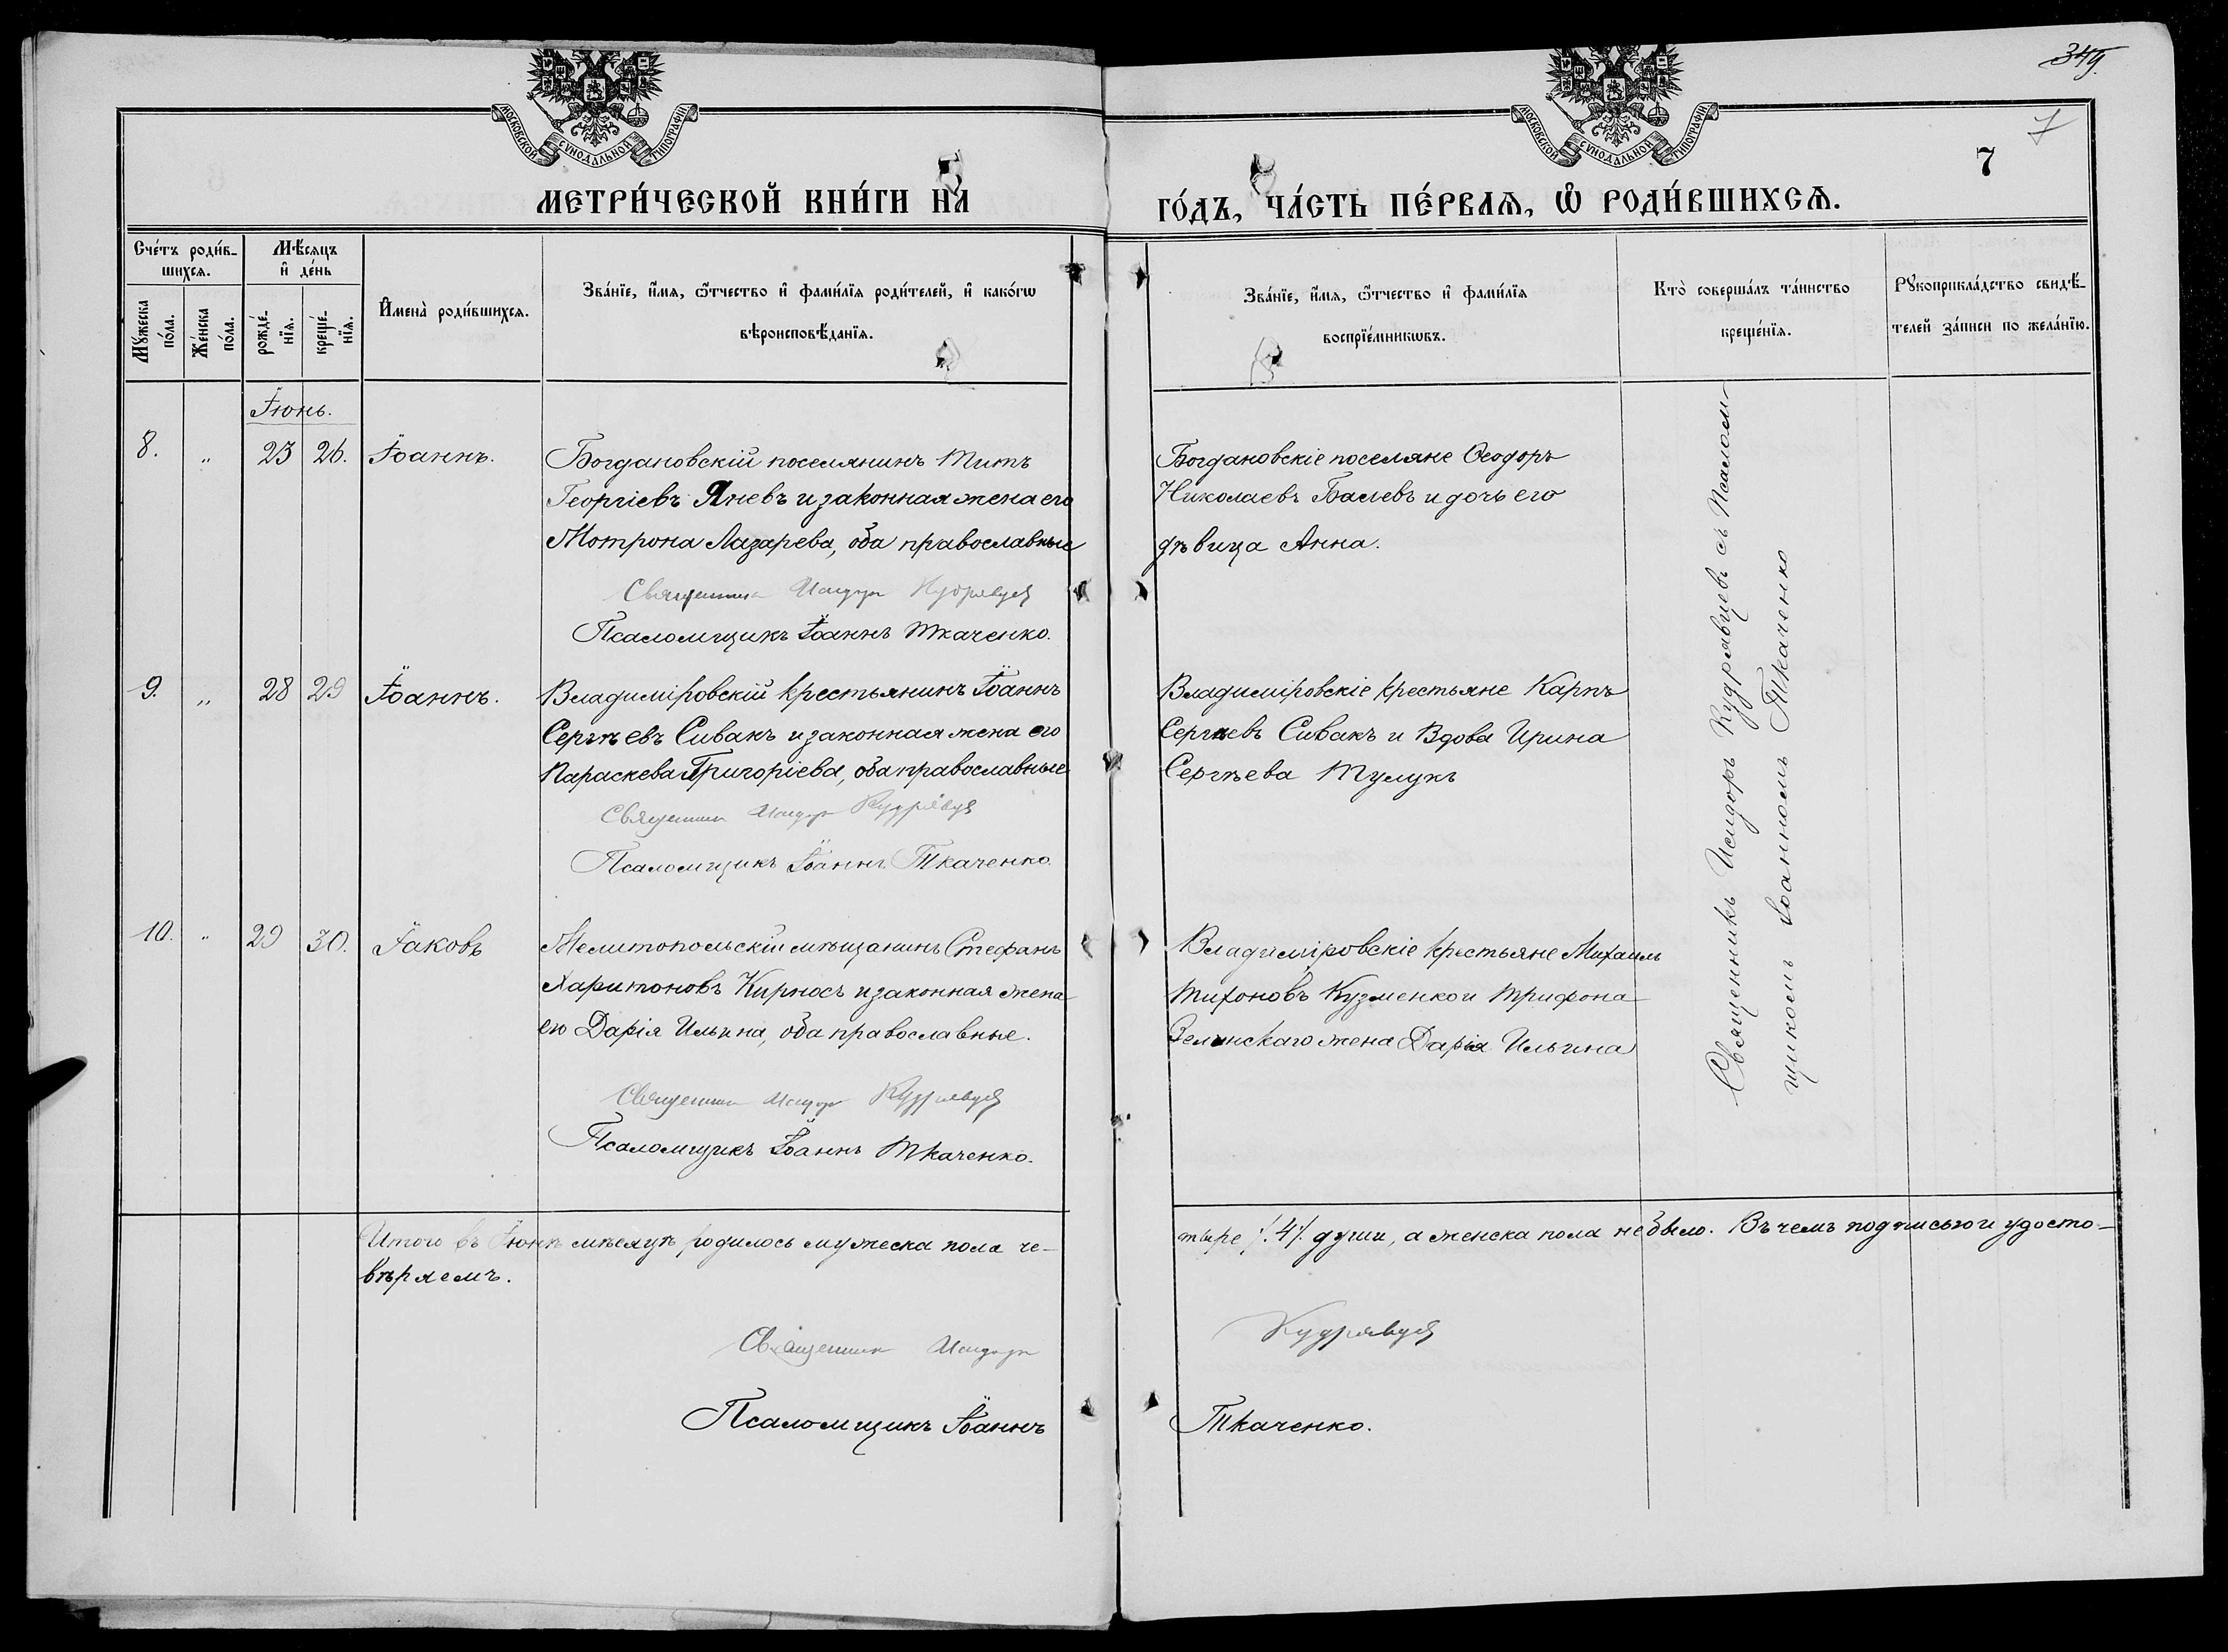 349.
7
МОСКОВСКОЙ СѴНОДАЛЬНОЙ ТИПОГРАФІИ
МОСКОВСКОЙ СѴНОДАЛЬНОЙ ТИПОГРАФІИ
7
МЕТРИ́ЧЕСКОЙ КНИ́ГИ НА
ГО́ДЪ, ЧА́СТЬ ПЕ́РВАѦ, Ѽ РОДИ́ВШИХСѦ.
Сче́тъ роди́в-
шихсѧ.
Мѣ́сѧцъ
и҆ де́нь
Мꙋ́жеска
по́ла.
Же́нска
по́ла.
рожде́-
нїѧ.
креще́-
нїѧ.
И҆мена̀ роди́вшихсѧ.
Зва́нїе, и҆́мѧ, ѻ҆́тчество и҆ фами́лїѧ роди́телей, и҆ како́гѡ
вѣроисповѣ́данїѧ.
Зва́нїе, и҆́мѧ, ѻ҆́тчество и҆ фами́лїѧ
воспрїе́мникѡвъ.
Кто̀ соверша́лъ та́инство
креще́нїѧ.
Рꙋкоприкла́дство свидѣ́-
телей за́писи по жела́нїю.
Іюнь.
8. „ 23 26. Іоаннъ.
Богдановскій поселянинъ Титъ
Георгіевъ Яневъ и законная жена его
Мотрона Лазарева, оба православные
Священникъ Исидоръ Кудрявцевъ
Псаломщикъ Іоаннъ Ткаченко.
Богдановскіе поселяне Ѳеодоръ
Николаевъ Балевъ и дочь его
дѣвица Анна.
9. „ 28 29 Іоаннъ.
Владиміровскій крестьянинъ Іоаннъ
Сергѣевъ Сивакъ и законная жена его
Параскева Григоріева, оба православные
Священникъ Исидоръ Кудрявцевъ
Псаломщикъ Іоаннъ Ткаченко.
Владиміровскіе крестьяне Карпъ
Сергѣевъ Сивакъ и Вдова Ирина
Сергѣева Тулукъ
10. „ 29 30. Іаковъ
Мелитопольскій мѣщанинъ Стефанъ
Харитоновъ Кирносъ и законная жена
его Дарія Ильина, оба православные.
Священникъ Исидоръ Кудрявцевъ
Псаломщикъ Іоаннъ Ткаченко.
Владиміровскіе крестьяне Михаилъ
Тихоновъ Кузменко и Трифона
Зелинскаго жена Дарія Ильина
Священникъ Исидоръ Кудрявцевъ съ Псалом-
щикомъ Іоанномъ Ткаченко
Итого въ Іюнѣ мѣсяцѣ родилось мужеска пола че-
тыре /.4/. души, а женска пола не было. Въ чемъ подписью и удосто-
вѣряемъ.
Священникъ Исидоръ Кудрявцевъ
Псаломщикъ Іоаннъ Ткаченко.